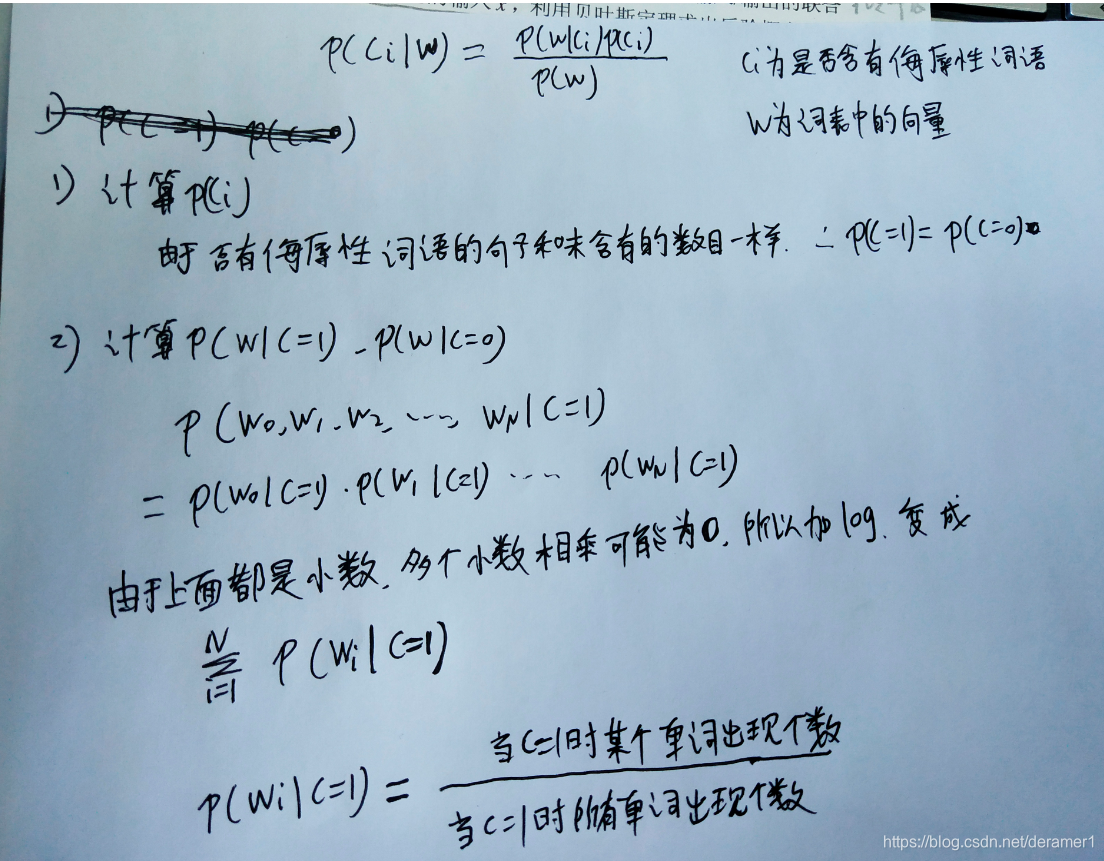 输入x，利用贝叶斯定理求出后验概
输出的联合
P(Ci|W) = P(W|Ci)P(Ci) / P(W)
Ci为是否含有侮辱性词语
W为词表中的向量
1) P(C=1) P(C=0)
1) 计算P(Ci)
由于含有侮辱性词语的句子和味含有的数目一样. ∴ P(C=1) = P(C=0)
2) 计算P(W|C=1) 、P(W|C=0)
P(W0, W1, W2, ..., WN|C=1)
= P(W0|C=1) · P(W1|C=1) ... P(WN|C=1)
由于上面都是小数, 多个小数相乘可能为0, 所以加log, 变成
N
Σ P(Wi|C=1)
i=1
当C=1时某个单词出现个数
P(Wi|C=1) =
当C=1时所有单词出现个数
https://blog.csdn.net/deramer1